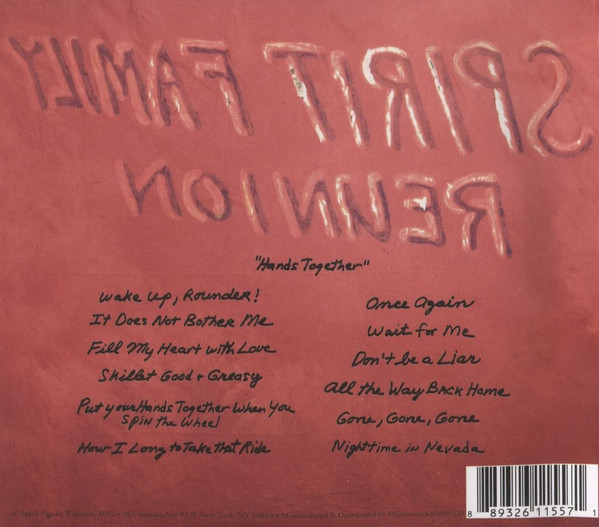 SPIRIT FAMILY
REUNION
"Hands Together"
Wake Up, Rounder!
It Does Not Bother Me
Fill My Heart with Love
Skillet Good + Greasy
Put your Hands Together When You
Spin the Wheel
How I Long to Take that Ride
Once Again
Wait for Me
Don't be a Liar
All the Way Back Home
Gone, Gone, Gone
Nighttime in Nevada
8 89326 11557 1